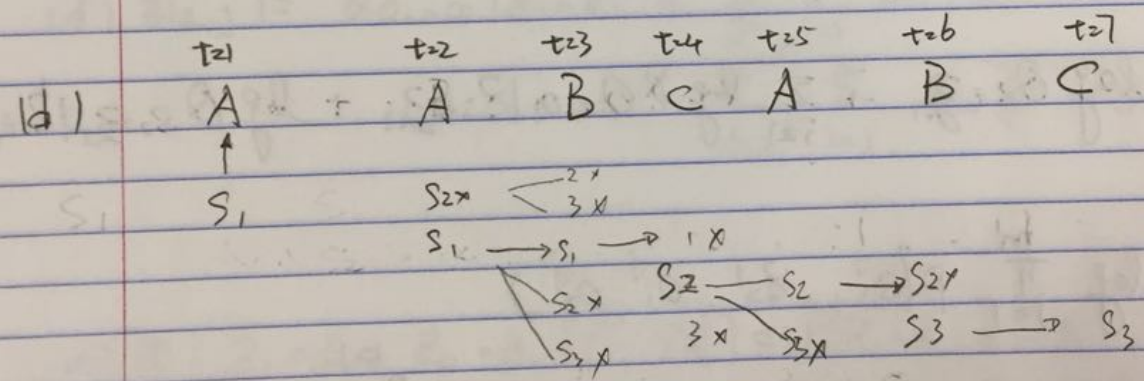 t=1 t=2 t=3 t=4 t=5 t=6 t=7
1d) A A B C A B C
S1 S2x 2x
3x
S1 S1 1x
S2x S2 S2 S2x
S3x 3x S3x S3 S3